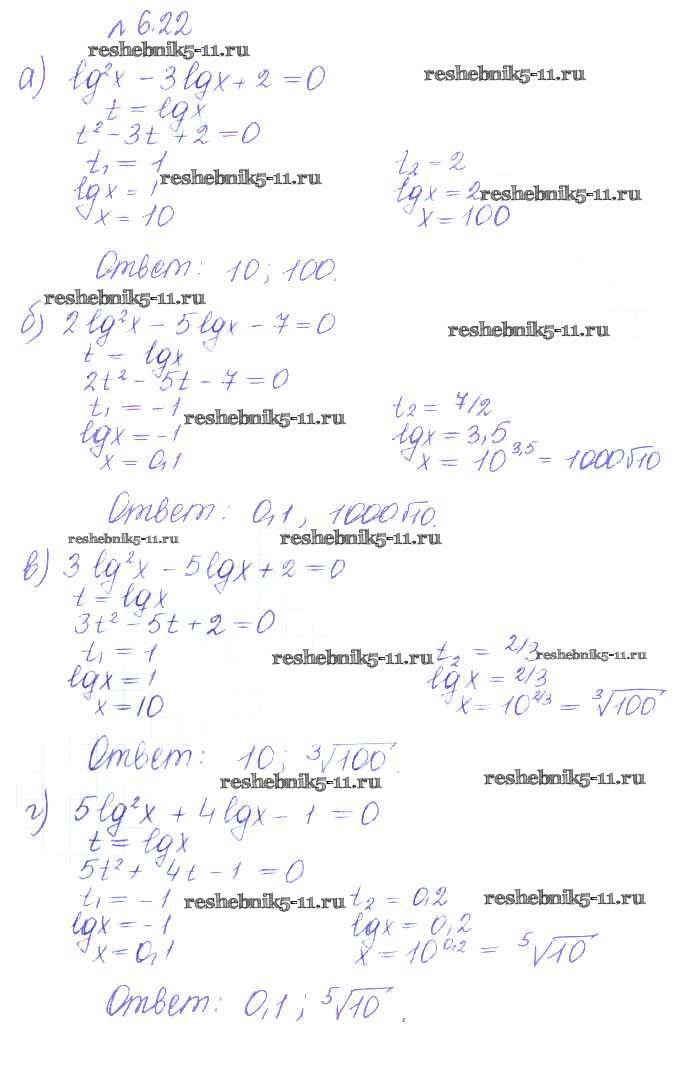 № 6.22
reshebnik5-11.ru
а) lg²x − 3lgx + 2 = 0 reshebnik5-11.ru
t = lgx
t² − 3t + 2 = 0
t₁ = 1 t₂ = 2
reshebnik5-11.ru
lgx = 1 lgx = 2 reshebnik5-11.ru
x = 10 x = 100
Ответ: 10; 100.
reshebnik5-11.ru
б) 2lg²x − 5lgx − 7 = 0 reshebnik5-11.ru
t = lgx
2t² − 5t − 7 = 0
t₁ = −1 t₂ = 7/2
reshebnik5-11.ru
lgx = −1 lgx = 3,5
x = 0,1 x = 10^3,5 = 1000√10
Ответ: 0,1, 1000√10.
reshebnik5-11.ru reshebnik5-11.ru
в) 3lg²x − 5lgx + 2 = 0
t = lgx
3t² − 5t + 2 = 0
t₁ = 1 t₂ = 2/3
reshebnik5-11.ru reshebnik5-11.ru
lgx = 1 lgx = 2/3
x = 10 x = 10^2/3 = ³√100
Ответ: 10; ³√100.
reshebnik5-11.ru reshebnik5-11.ru
г) 5lg²x + 4lgx − 1 = 0
t = lgx
5t² + 4t − 1 = 0
t₁ = −1 reshebnik5-11.ru t₂ = 0,2 reshebnik5-11.ru
lgx = −1 lgx = 0,2
x = 0,1 x = 10^0,2 = ⁵√10
Ответ: 0,1; ⁵√10.